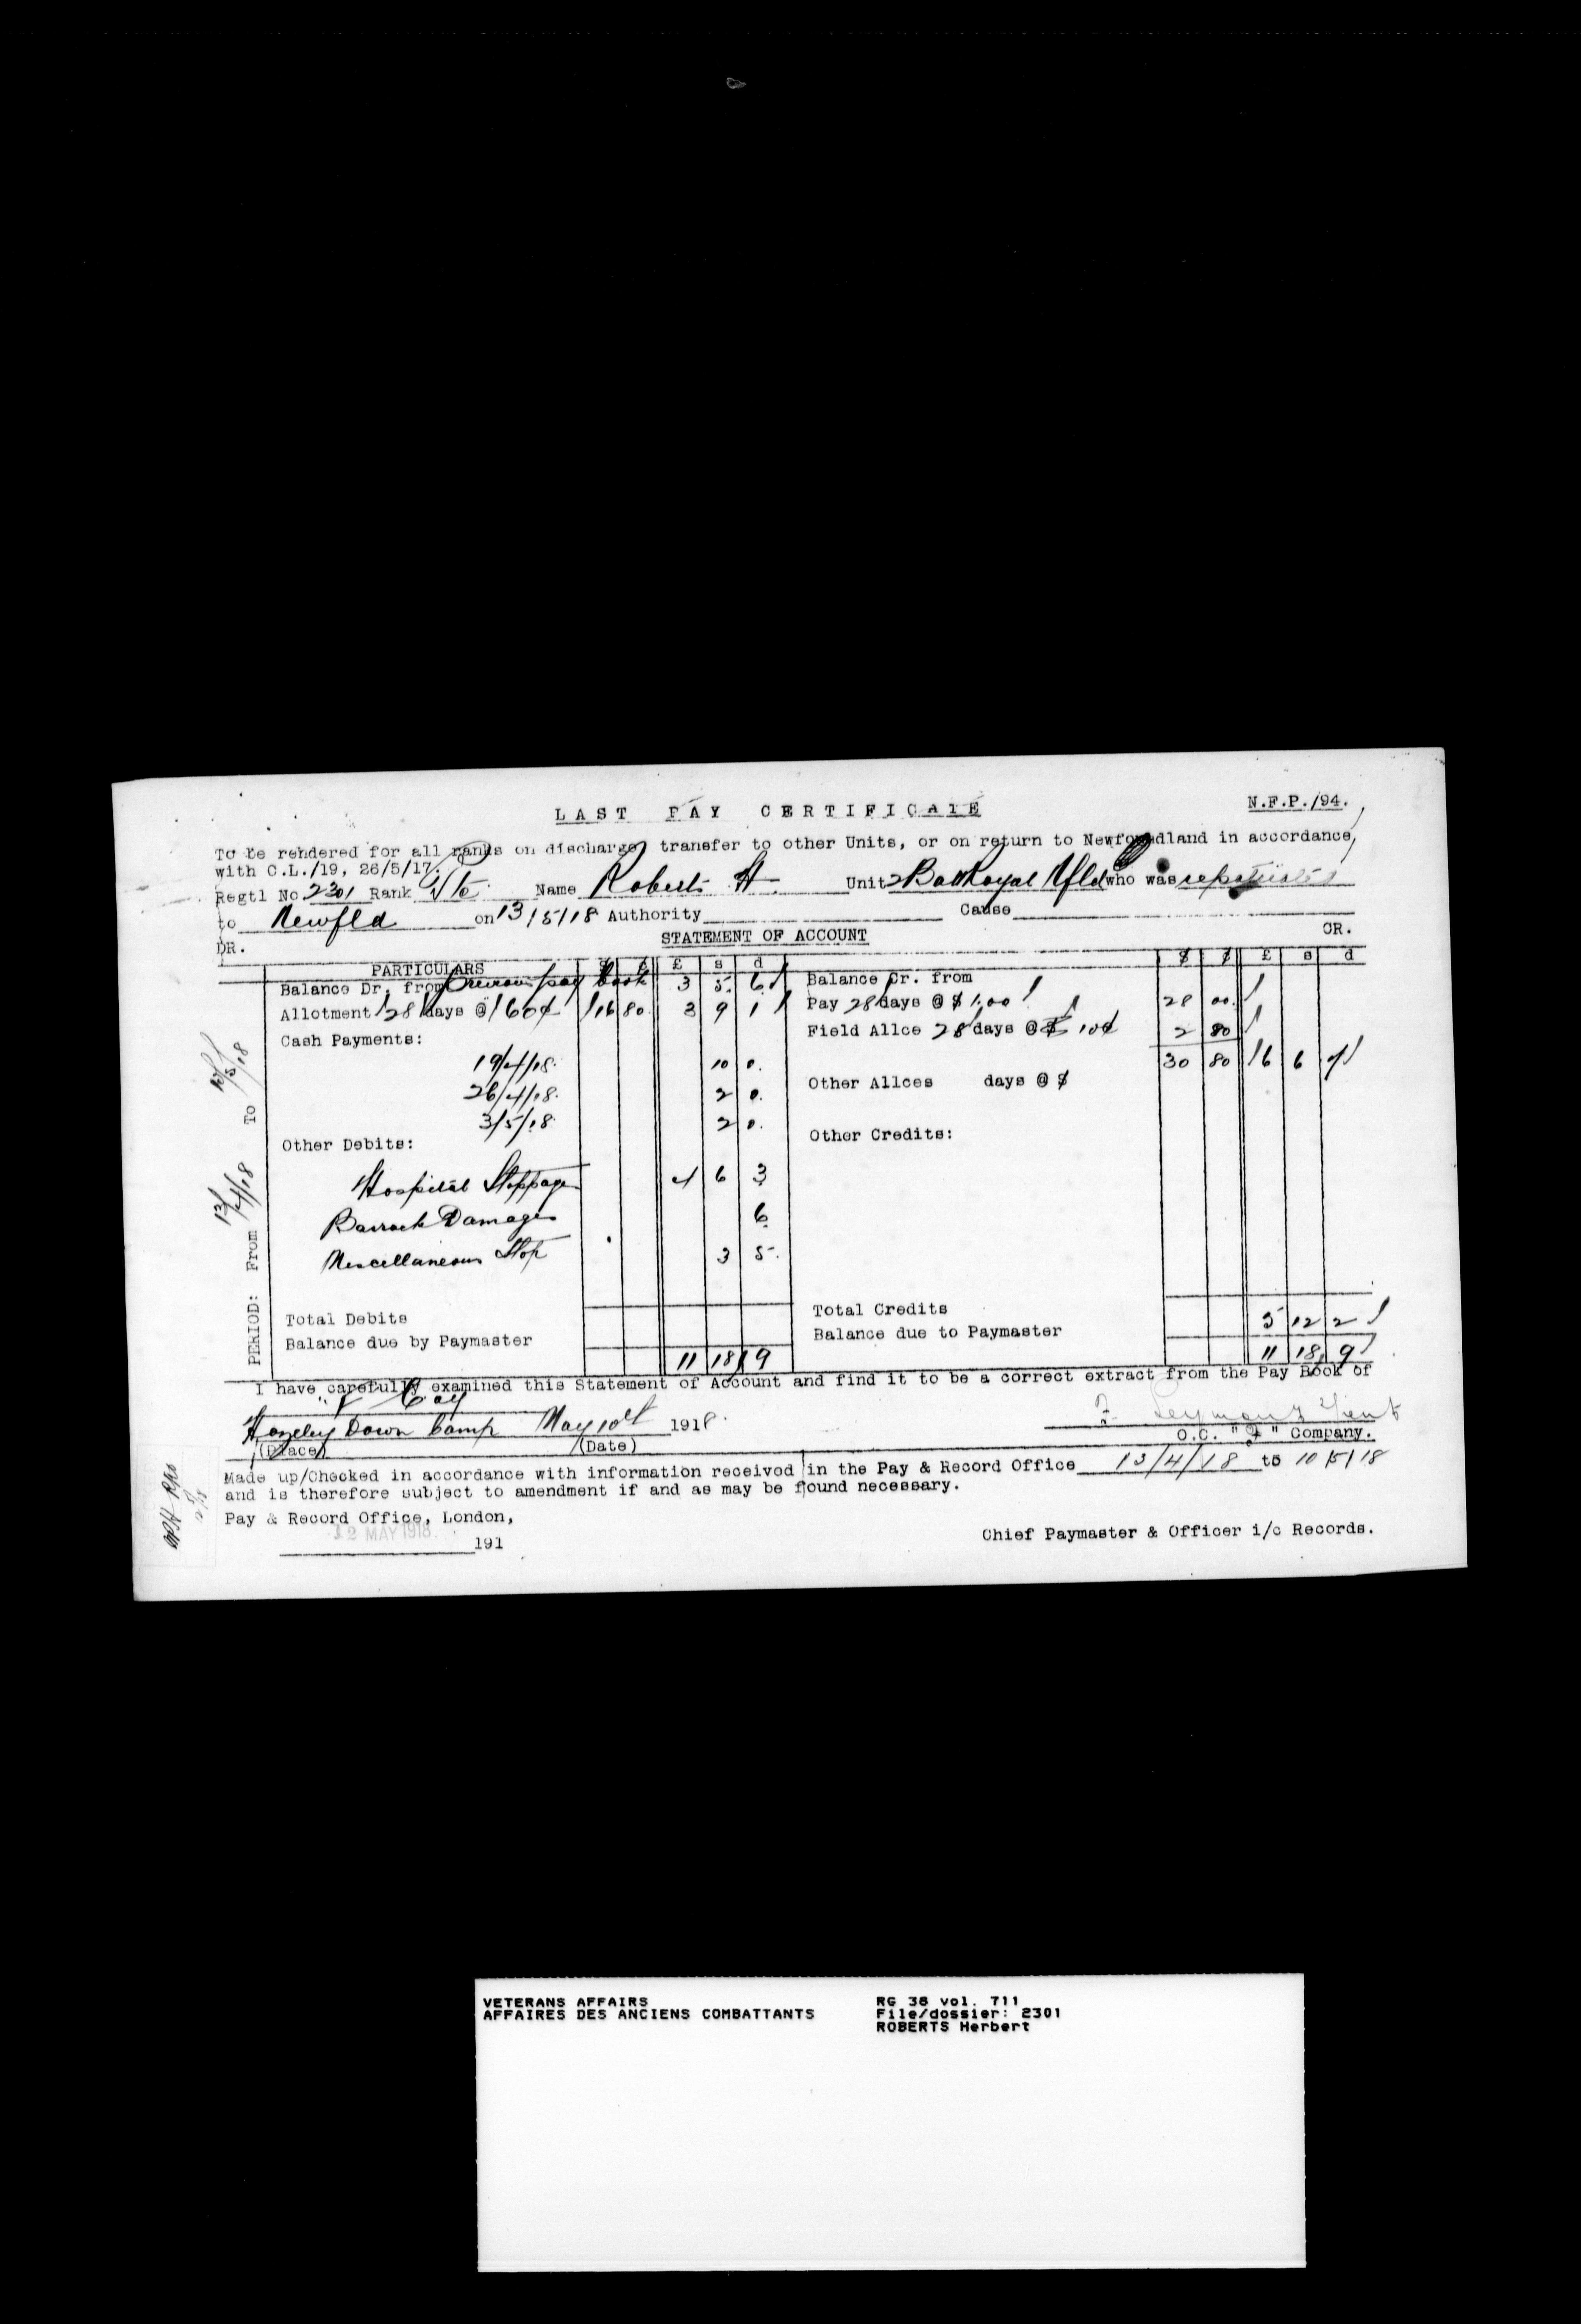 LAST PAY CERTIFICATE
N.F.P./94.
To be rendered for all ranks on discharge, transfer to other Units, or on return to Newfoundland in accordance
with C.L./19, 26/5/17.
Regtl No. 2301 Rank Pte Name Roberts H. Unit 2 Bat Royal Nfld who was repatriated
to Newfld on 13/5/18 Authority Cause
DR. STATEMENT OF ACCOUNT CR.
PARTICULARS $ ¢ £ s d $ ¢ £ s d
Balance Dr. from previous pay book 3 5 6 Balance Cr. from
Allotment 28 days @ 60¢ 16 80 3 9 1 Pay 28 days @ $ 1.00 28 00
Field Allce 28 days @ $ 10¢ 2 80
Cash Payments:
19/4/18. 10 0. 30 80 6 6 7
26/4/18. 2 0. Other Allces days @ $
3/5/18 2 0.
Other Debits: Other Credits:
Hospital Stoppage 4 6 3
Barrack Damages 6
Miscellaneous Stop 3 5.
Total Debits Total Credits
Balance due by Paymaster Balance due to Paymaster 5 12 2
11 18 9 11 18 9
PERIOD: From 13/4/18 To 10/5/18
I have carefully examined this Statement of Account and find it to be a correct extract from the Pay Book of
Hazeley Down Camp May 10th 1918.
(Place) (Date)
O.C. "F" Company.
Made up/Checked in accordance with information received in the Pay & Record Office 13/4/18 to 10/5/18
and is therefore subject to amendment if and as may be found necessary.
Pay & Record Office, London,
12 MAY 1918
191
Chief Paymaster & Officer i/c Records.
VETERANS AFFAIRS
AFFAIRES DES ANCIENS COMBATTANTS
RG 38 vol. 711
File/dossier: 2301
ROBERTS Herbert